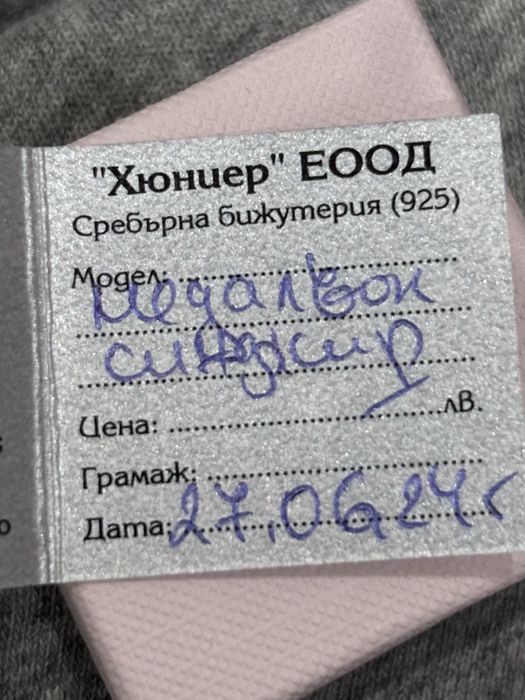 "Хюниер" ЕООД
Сребърна бижутерия (925)
Модел:
медальон
синджир
Цена: лв.
Грамаж:
Дата: 27.06.24 г